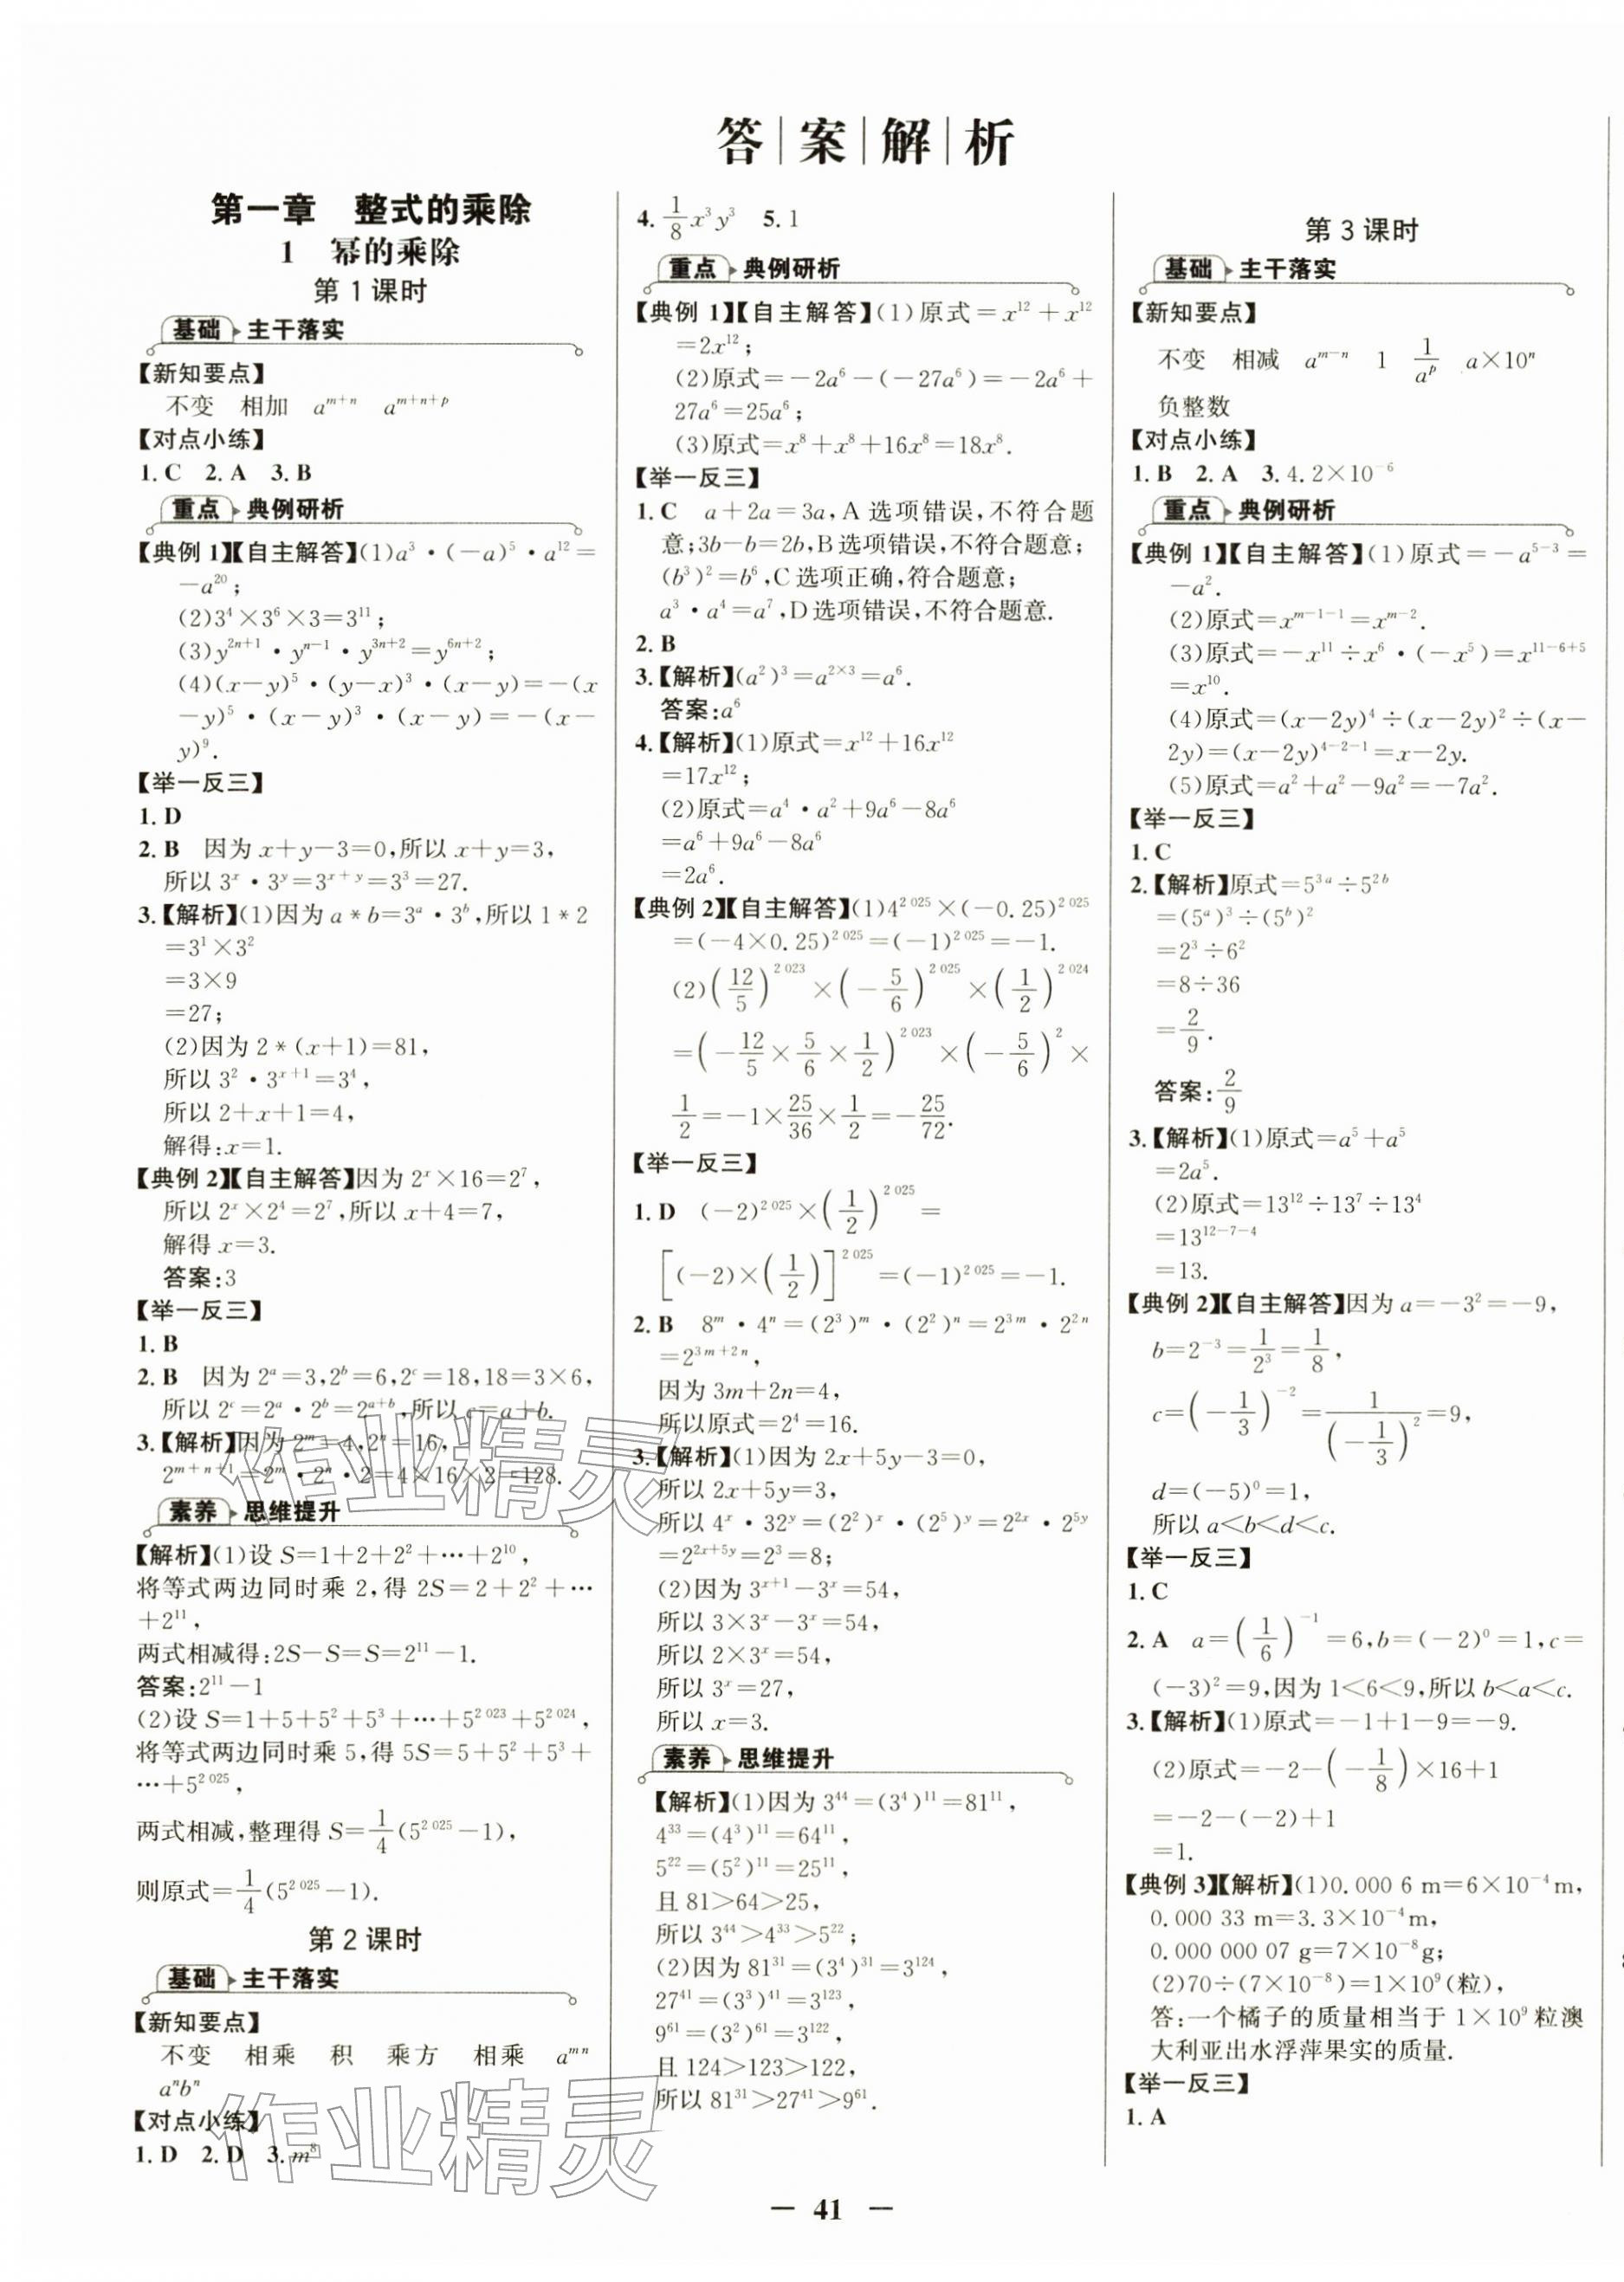 答|案|解|析
第一章　整式的乘除
1　幂的乘除
第 1 课时
基础 主干落实
【新知要点】
不变　相加　a^{m+n}　a^{m+n+p}
【对点小练】
1. C　2. A　3. B
重点 典例研析
【典例 1】【自主解答】(1)a³·(－a)⁵·a¹²＝
－a²⁰；
(2)3⁴×3⁶×3＝3¹¹；
(3)y^{2n+1}·y^{n－1}·y^{3n+2}＝y^{6n+2}；
(4)(x－y)⁵·(y－x)³·(x－y)＝－(x
－y)⁵·(x－y)³·(x－y)＝－(x－
y)⁹.
【举一反三】
1. D
2. B　因为 x＋y－3＝0,所以 x＋y＝3,
所以 3^x·3^y＝3^{x+y}＝3³＝27.
3.【解析】(1)因为 a*b＝3^a·3^b,所以 1*2
＝3¹×3²
＝3×9
＝27；
(2)因为 2*(x＋1)＝81,
所以 3²·3^{x+1}＝3⁴,
所以 2＋x＋1＝4,
解得:x＝1.
【典例 2】【自主解答】因为 2^x×16＝2⁷,
所以 2^x×2⁴＝2⁷,所以 x＋4＝7,
解得 x＝3.
答案:3
【举一反三】
1. B
2. B　因为 2^a＝3,2^b＝6,2^c＝18,18＝3×6,
所以 2^c＝2^a·2^b＝2^{a+b},所以 c＝a＋b.
3.【解析】因为 2^m＝4,2^n＝16,
2^{m+n+1}＝2^m·2^n·2＝4×16×2＝128.
素养 思维提升
【解析】(1)设 S＝1＋2＋2²＋…＋2¹⁰,
将等式两边同时乘 2,得 2S＝2＋2²＋…
＋2¹¹,
两式相减得:2S－S＝S＝2¹¹－1.
答案:2¹¹－1
(2)设 S＝1＋5＋5²＋5³＋…＋5^{2 023}＋5^{2 024},
将等式两边同时乘 5,得 5S＝5＋5²＋5³＋
…＋5^{2 025},
两式相减,整理得 S＝1/4(5^{2 025}－1),
则原式＝1/4(5^{2 025}－1).
第 2 课时
基础 主干落实
【新知要点】
不变　相乘　积　乘方　相乘　a^{mn}
a^n b^n
【对点小练】
1. D　2. D　3. m⁸
4. 1/8 x³y³　5. 1
重点 典例研析
【典例 1】【自主解答】(1)原式＝x¹²＋x¹²
＝2x¹²；
(2)原式＝－2a⁶－(－27a⁶)＝－2a⁶＋
27a⁶＝25a⁶；
(3)原式＝x⁸＋x⁸＋16x⁸＝18x⁸.
【举一反三】
1. C　a＋2a＝3a,A 选项错误,不符合题
意;3b－b＝2b,B选项错误,不符合题意;
(b³)²＝b⁶,C 选项正确,符合题意;
a³·a⁴＝a⁷,D 选项错误,不符合题意.
2. B
3.【解析】(a²)³＝a^{2×3}＝a⁶.
答案:a⁶
4.【解析】(1)原式＝x¹²＋16x¹²
＝17x¹²；
(2)原式＝a⁴·a²＋9a⁶－8a⁶
＝a⁶＋9a⁶－8a⁶
＝2a⁶.
【典例 2】【自主解答】(1)4^{2 025}×(－0.25)^{2 025}
＝(－4×0.25)^{2 025}＝(－1)^{2 025}＝－1.
(2)(12/5)^{2 023}×(－5/6)^{2 025}×(1/2)^{2 024}
＝(－12/5×5/6×1/2)^{2 023}×(－5/6)²×
1/2＝－1×25/36×1/2＝－25/72.
【举一反三】
1. D　(－2)^{2 025}×(1/2)^{2 025}＝
[(－2)×(1/2)]^{2 025}＝(－1)^{2 025}＝－1.
2. B　8^m·4^n＝(2³)^m·(2²)^n＝2^{3m}·2^{2n}
＝2^{3m+2n},
因为 3m＋2n＝4,
所以原式＝2⁴＝16.
3.【解析】(1)因为 2x＋5y－3＝0,
所以 2x＋5y＝3,
所以 4^x·32^y＝(2²)^x·(2⁵)^y＝2^{2x}·2^{5y}
＝2^{2x+5y}＝2³＝8;
(2)因为 3^{x+1}－3^x＝54,
所以 3×3^x－3^x＝54,
所以 2×3^x＝54,
所以 3^x＝27,
所以 x＝3.
素养 思维提升
【解析】(1)因为 3⁴⁴＝(3⁴)¹¹＝81¹¹,
4³³＝(4³)¹¹＝64¹¹,
5²²＝(5²)¹¹＝25¹¹,
且 81＞64＞25,
所以 3⁴⁴＞4³³＞5²²;
(2)因为 81³¹＝(3⁴)³¹＝3¹²⁴,
27⁴¹＝(3³)⁴¹＝3¹²³,
9⁶¹＝(3²)⁶¹＝3¹²²,
且 124＞123＞122,
所以 81³¹＞27⁴¹＞9⁶¹.
第 3 课时
基础 主干落实
【新知要点】
不变　相减　a^{m－n}　1　1/a^p　a×10^n
负整数
【对点小练】
1. B　2. A　3. 4.2×10^{－6}
重点 典例研析
【典例 1】【自主解答】(1)原式＝－a^{5－3}＝
－a².
(2)原式＝x^{m－1－1}＝x^{m－2}.
(3)原式＝－x¹¹÷x⁶·(－x⁵)＝x^{11－6+5}
＝x¹⁰.
(4)原式＝(x－2y)⁴÷(x－2y)²÷(x－
2y)＝(x－2y)^{4－2－1}＝x－2y.
(5)原式＝a²＋a²－9a²＝－7a².
【举一反三】
1. C
2.【解析】原式＝5^{3a}÷5^{2b}
＝(5^a)³÷(5^b)²
＝2³÷6²
＝8÷36
＝2/9.
答案:2/9
3.【解析】(1)原式＝a⁵＋a⁵
＝2a⁵.
(2)原式＝13¹²÷13⁷÷13⁴
＝13^{12－7－4}
＝13.
【典例 2】【自主解答】因为 a＝－3²＝－9,
b＝2^{－3}＝1/2³＝1/8,
c＝(－1/3)^{－2}＝1/(－1/3)²＝9,
d＝(－5)⁰＝1,
所以 a＜b＜d＜c.
【举一反三】
1. C
2. A　a＝(1/6)^{－1}＝6,b＝(－2)⁰＝1,c＝
(－3)²＝9,因为 1＜6＜9,所以 b＜a＜c.
3.【解析】(1)原式＝－1＋1－9＝－9.
(2)原式＝－2－(－1/8)×16＋1
＝－2－(－2)＋1
＝1.
【典例 3】【解析】(1)0.000 6 m＝6×10^{－4}m,
0.000 33 m＝3.3×10^{－4}m,
0.000 000 07 g＝7×10^{－8}g;
(2)70÷(7×10^{－8})＝1×10⁹(粒),
答:一个橘子的质量相当于 1×10⁹粒澳
大利亚出水浮萍果实的质量.
【举一反三】
1. A
— 41 —
作业精灵
作业精灵